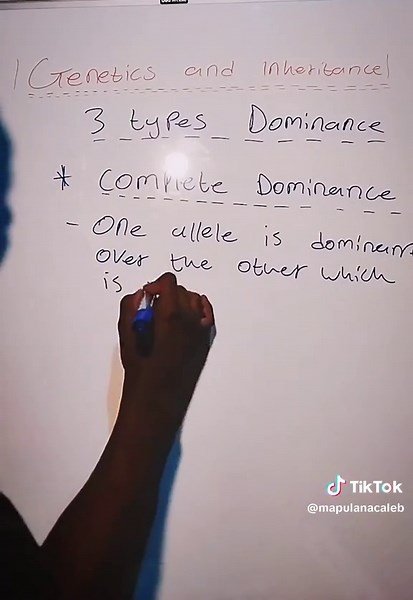 Genetics and Inheritance
3 types Dominance
* Complete Dominance
- One allele is dominant
over the other which
is
TikTok
@mapulanacaleb